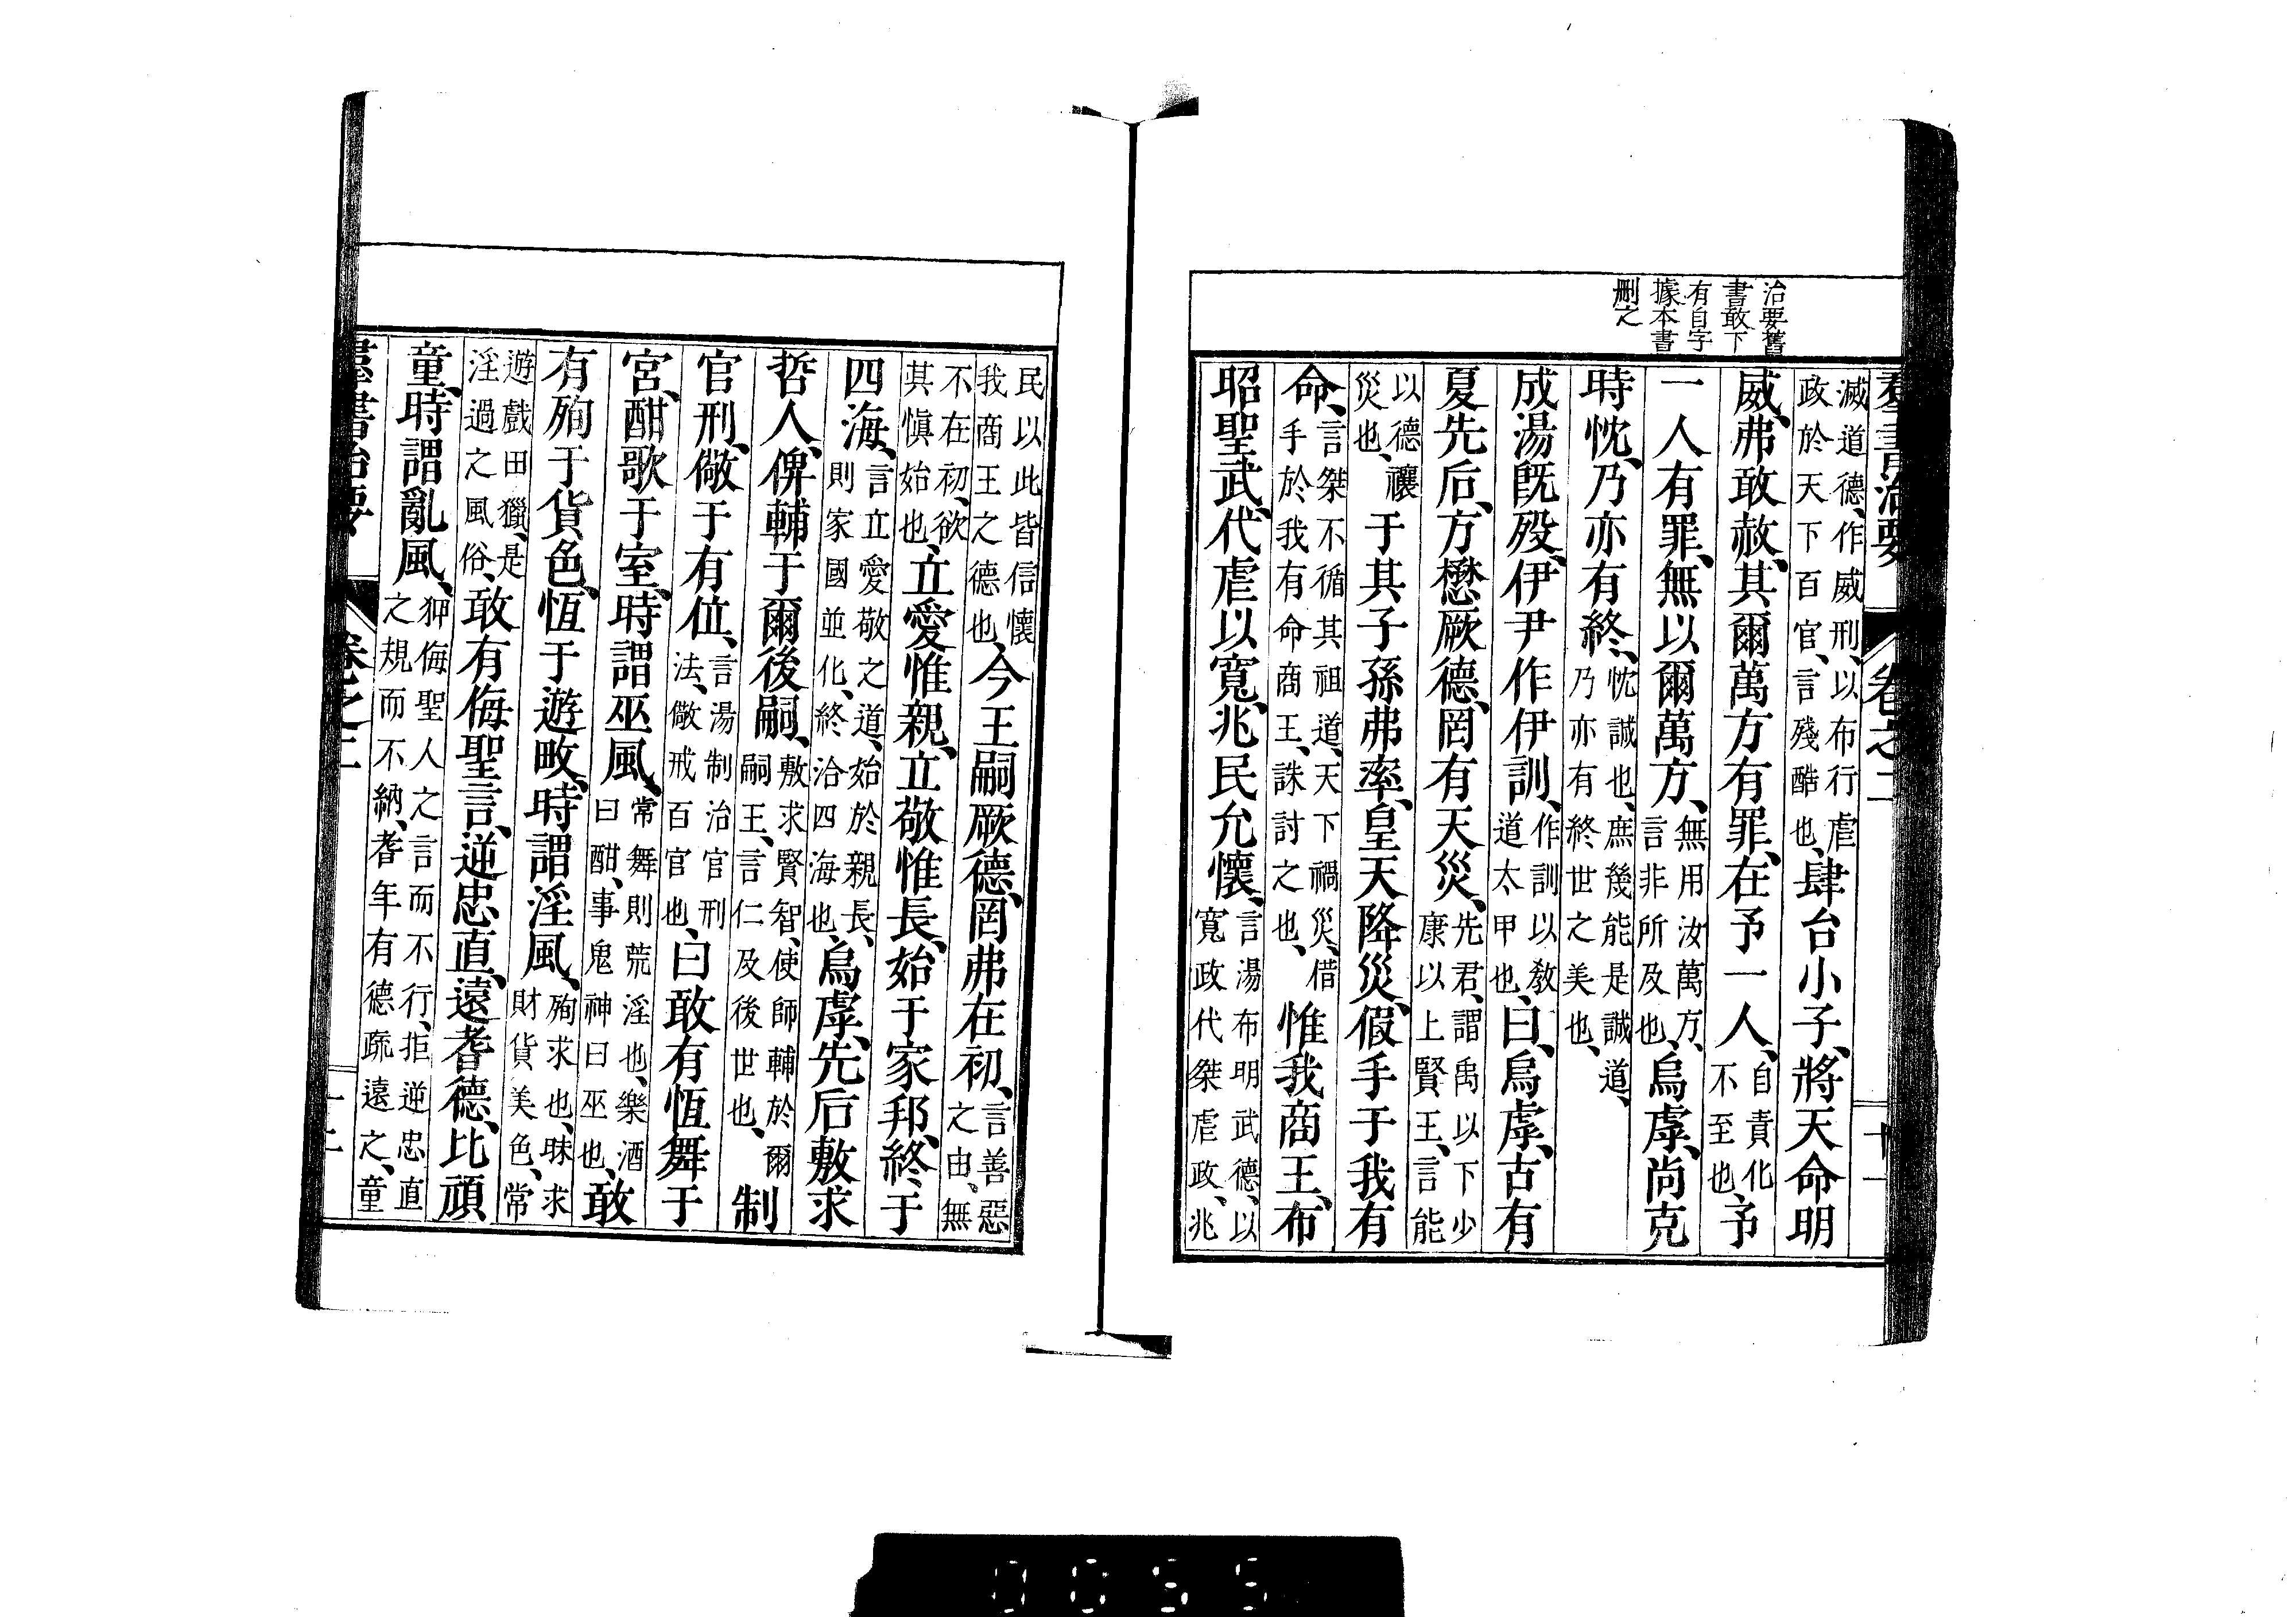 治要舊
書敢下
有自字
據本書
刪之
羣書治要 卷之二 十一
滅道德、作威刑、以布行虐
政於天下百官、言殘酷也、肆台小子、將天命明
威、弗敢赦、其爾萬方有罪、在予一人、自責化不至也、予
一人有罪、無以爾萬方、無用汝萬方、言非所及也、烏虖、尚克
時忱、乃亦有終、忱誠也、庶幾能是誠道、乃亦有終世之美也、
成湯旣歿、伊尹作伊訓、作訓以敎道太甲也、曰、烏虖、古有
夏先后、方懋厥德、罔有天災、先君、謂禹以下少康以上賢王、言能
以德禳災也、于其子孫弗率、皇天降災、假手于我有
命、言桀不循其祖道、天下禍災、借手於我有命商王、誅討之也、惟我商王、布
昭聖武、代虐以寬、兆民允懷、言湯布明武德、以寬政代桀虐政、兆
民以此皆信懷我商王之德也、今王嗣厥德、罔弗在初、言善惡之由、無
不在初、欲其愼始也、立愛惟親、立敬惟長、始于家邦、終于
四海、言立愛敬之道、始於親長、則家國並化、終洽四海也、烏虖、先后敷求
哲人、俾輔于爾後嗣、敷求賢智、使師輔於爾嗣王、言仁及後世也、制
官刑、儆于有位、言湯制治官刑法、儆戒百官也、曰敢有恆舞于
宮、酣歌于室、時謂巫風、常舞則荒淫也、樂酒曰酣、事鬼神曰巫也、敢
有殉于貨色、恆于遊畋、時謂淫風、殉求也、昧求財貨美色、常
遊戲田獵、是淫過之風俗、敢有侮聖言、逆忠直、遠耆德、比頑
童、時謂亂風、狎侮聖人之言而不行、拒逆忠直之規而不納、耆年有德疏遠之、童
羣書治要 卷之二 十二
0055